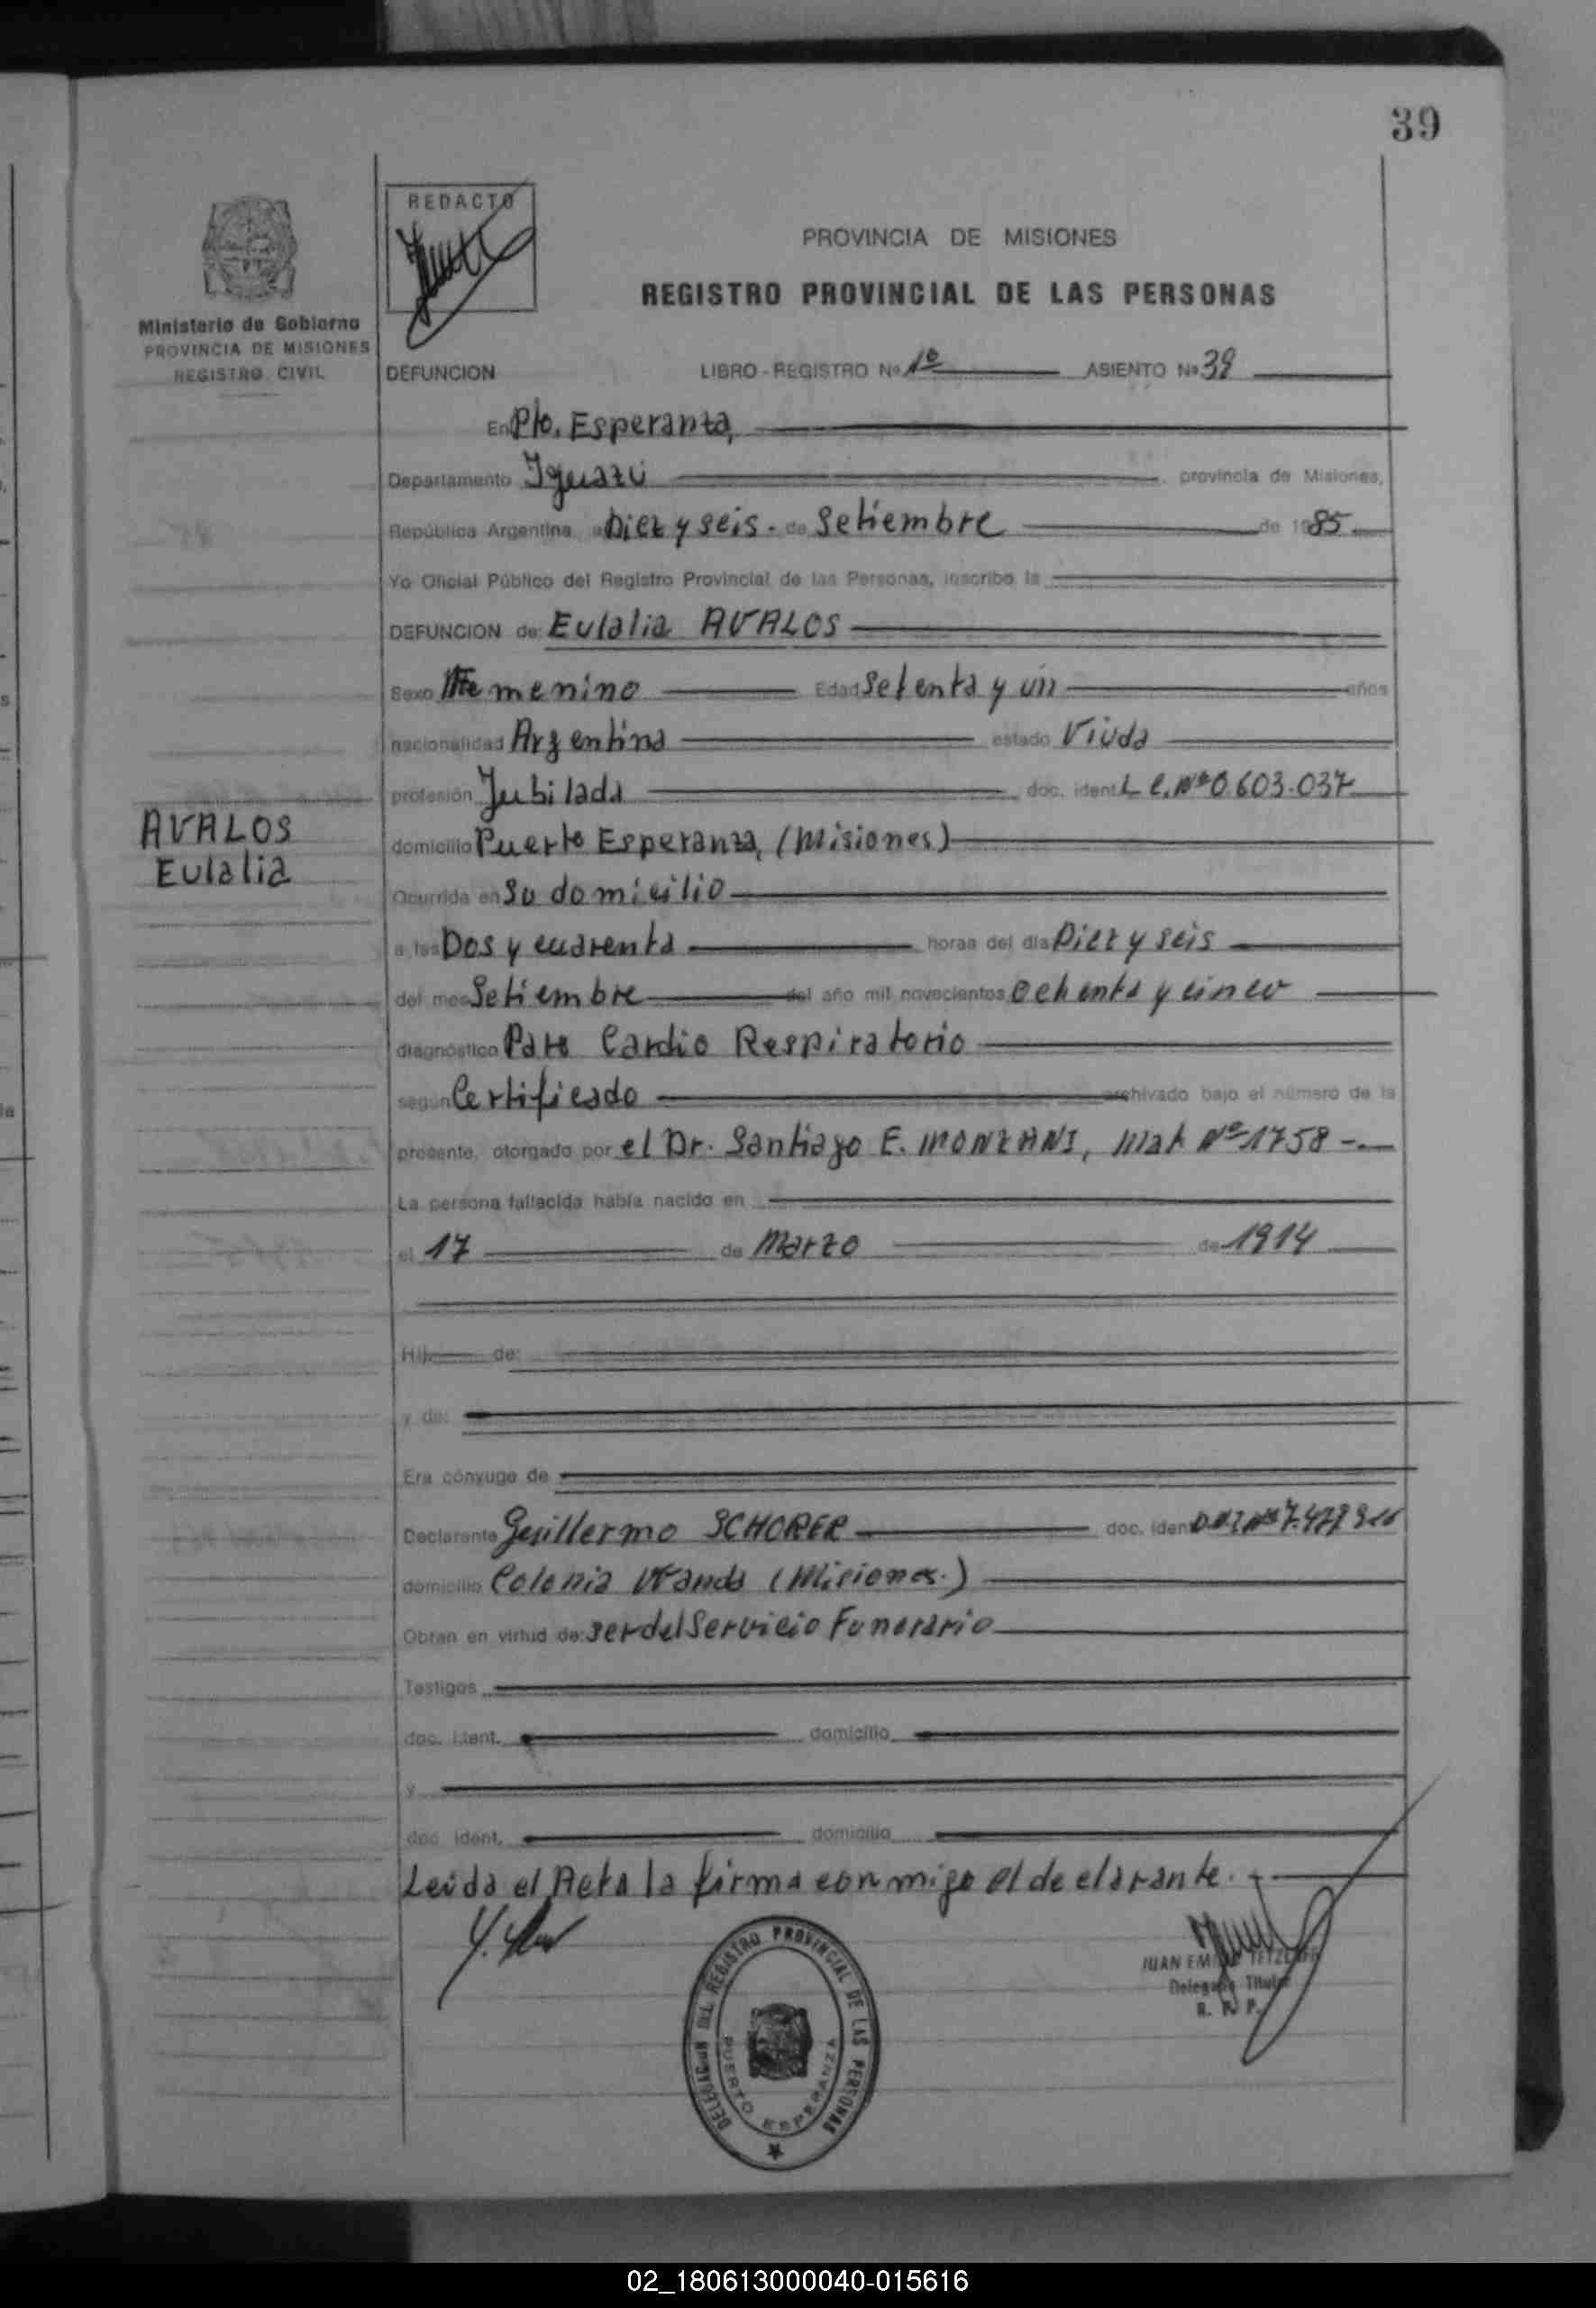 39
REDACTO
PROVINCIA DE MISIONES
REGISTRO PROVINCIAL DE LAS PERSONAS
Ministerio de Gobierno
PROVINCIA DE MISIONES
REGISTRO CIVIL
DEFUNCION LIBRO - REGISTRO Nº 1º ASIENTO Nº 39
En Pto. Esperanza,
Departamento Iguazú provincia de Misiones,
República Argentina, a Diez y seis. de Setiembre de 1985
Yo Oficial Público del Registro Provincial de las Personas, inscribo la
DEFUNCION de: Eulalia AVALOS
Sexo Femenino Edad Setenta y un años
nacionalidad Argentina estado Viuda
profesión Jubilada doc. ident. L C. Nº 0.603.037
AVALOS
Eulalia
domicilio Puerto Esperanza, (Misiones)
Ocurrida en Su domicilio
a las Dos y cuarenta horas del día Diez y seis
del mes Setiembre del año mil novecientos Ochenta y cinco
diagnóstico Paro Cardio Respiratorio
según Certificado archivado bajo el número de la
presente, otorgado por el Dr. Santiago E. MONZANI, Mat Nº 1758 -.
La persona fallecida había nacido en
el 17 de Marzo de 1914
Hij de:
y de:
Era cónyuge de
Declarante Guillermo SCHORER doc. iden
domicilio Colonia Wanda (Misiones.)
Obran en virtud de: ser del Servicio Funerario
Testigos
doc. ident. domicilio
y
doc. ident. domicilio
Leida el Acta la firma conmigo el declarante.
JUAN
Delegado Titular
R. P. P.
DELEGACION DEL REGISTRO PROVINCIAL DE LAS PERSONAS
PUERTO ESPERANZA
02_180613000040-015616